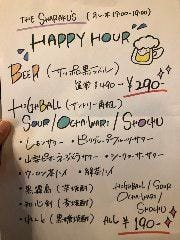 THE SHARAKU'S (オレ本 17:00-19:00)
HAPPY HOUR
BEER (サッポロ黒ラベル)
通常 ¥490- → ¥290-
HIGHBALL (サントリー角瓶)
SOUR/OCHAWARI/SHOCHU
・レモンサワー ・ピンクグレープフルーツサワー
・シークワーサーサワー
・ウーロン茶ハイ ・緑茶ハイ
・黒霧島 (芋焼酎)
(麦焼酎)
・れんと (黒糖焼酎)
HIGHBALL/SOUR
OCHAWARI/
SHOCHU
ALL ¥190-